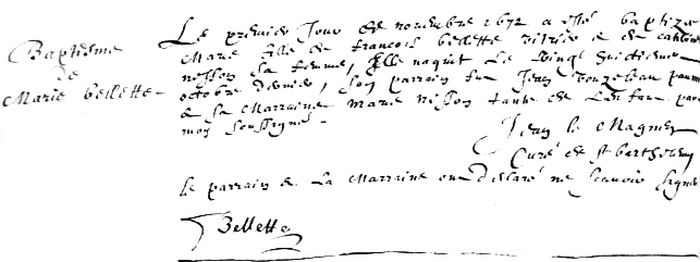 Baptesme
de
Marie bellette
Le premier Jour de novembre 1672 a esté baptizée
Marie fille de francois bellette vitrier & de catherine
nisson sa femme, Elle naquit Le vingt huictieme
octobre dernier, son parrain fut Jean
& la Marraine marie nisson tante de L'enfan par
moy soussigné
Jean le Magner
Curé de st barthelemy
le parrain & La Marraine ont declaré ne scavoir signer
Bellette